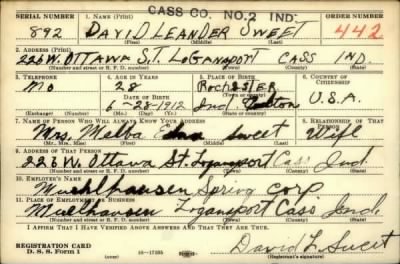 CASS CO. NO. 2 IND.
SERIAL NUMBER 1. NAME (Print) ORDER NUMBER
892 DAVID LEANDER SWEET 442
(First) (Middle) (Last)
2. ADDRESS (Print)
226 W. OTTAWA ST. LOGANSPORT CASS IND.
(Number and street or R. F. D. number) (Town) (County) (State)
3. TELEPHONE 4. AGE IN YEARS 5. PLACE OF BIRTH 6. COUNTRY OF CITIZENSHIP
No 28 ROCHESTER
DATE OF BIRTH (Town or county)
6-28-1912 Ind. U.S.A.
(Exchange) (Number) (Mo.) (Day) (Yr.) (State or country)
7. NAME OF PERSON WHO WILL ALWAYS KNOW YOUR ADDRESS 8. RELATIONSHIP OF THAT PERSON
Mrs. Melba Sweet Wife
(Mr., Mrs., Miss) (First) (Middle) (Last)
9. ADDRESS OF THAT PERSON
226 W. Ottawa St. Logansport Cass Ind.
(Number and street or R. F. D. number) (Town) (County) (State)
10. EMPLOYER'S NAME
Muehlhausen Spring Corp
11. PLACE OF EMPLOYMENT OR BUSINESS
Muelhausen Logansport Cass Ind
(Number and street or R. F. D. number) (Town) (County) (State)
I AFFIRM THAT I HAVE VERIFIED ABOVE ANSWERS AND THAT THEY ARE TRUE.
REGISTRATION CARD
D. S. S. Form 1 16-17105 David L. Sweet
(Registrant's signature)